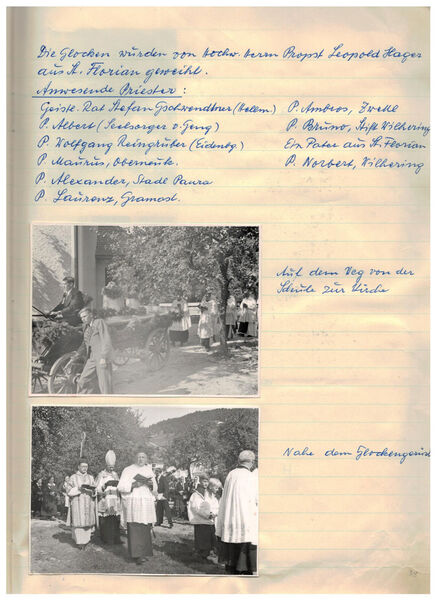 Die Glocken wurden von hochw. Herrn Propst Leopold Hager
aus St. Florian geweiht.
Anwesende Priester:
Geistl. Rat Stefan Gschwendtner
P. Ambros, Zwettl
P. Albert (Seelsorger v. Geng)
P. Bruno, Stift Wilhering
P. Wolfgang Reingruber (Eidenbg.)
Ein Pater aus St. Florian
P. Maurus, Oberneuk.
P. Norbert, Wilhering
P. Alexander, Stadl Paura
P. Laurenz, Gramast.
Auf dem Weg von der
Schule zur Kirche
Nahe dem Glockengerüst